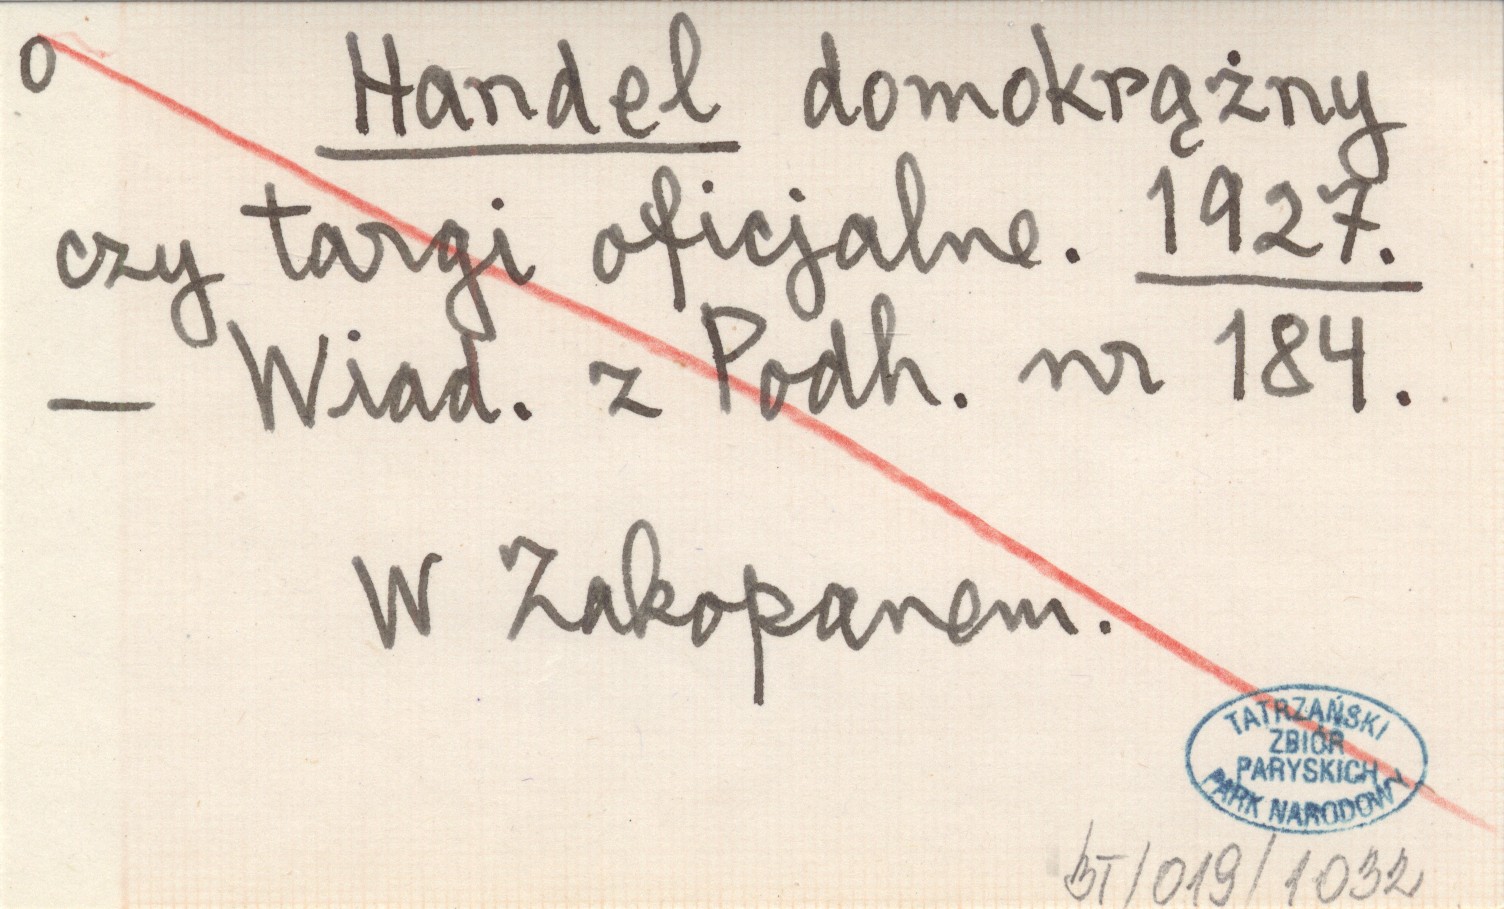 o Handel domokrążny
czy targi oficjalne. 1927.
— Wiad. z Podh. nr 184.
W Zakopanem.
TATRZAŃSKI
ZBIÓR
PARYSKICH
PARK NARODOWY
BT/019/1032